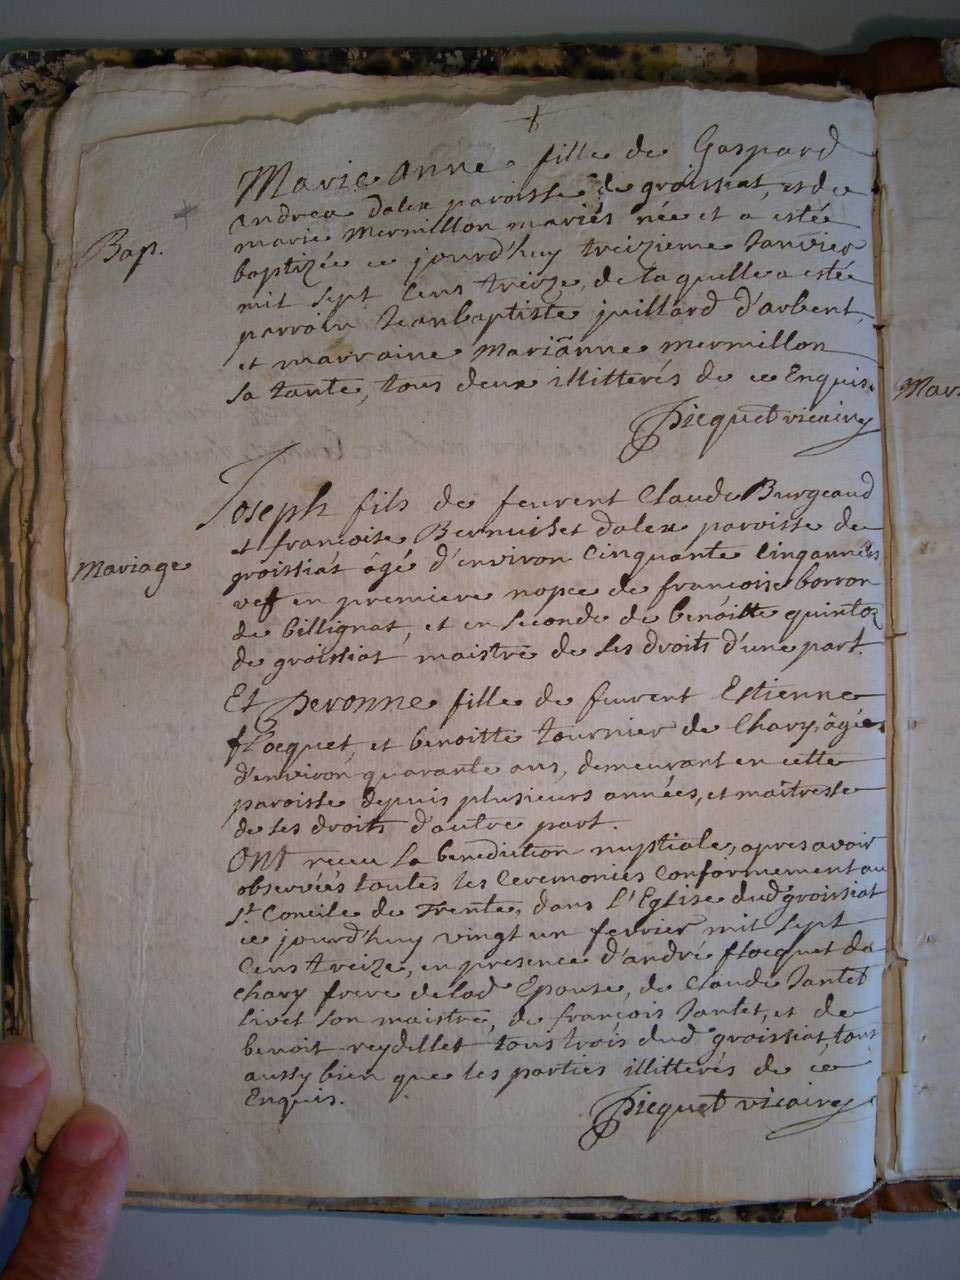 Bap.
Marie anne fille de Gaspard
andrea dalex paroisse de groissiat, et de
marie mermillon mariés née et a estée
baptizée ce jourd'huy treizieme Janvier
mil sept Cens treize, de laquelle a esté
parrain Jeanbaptiste juillard d'arbent,
et marraine marianne mermillon
sa tante, tous deux illitterés de ce Enquis.
Picquet vicaire
Mariage
Joseph fils de feu Claude Burgeaud
et francoise dalex paroisse de
groissiat âgé d'environ Cinquante Cinq années
vef en premiere nopce de francoise borron
de billignat, et en seconde de benoitte quintoz
de groissiat maistre de ses droits d'une part.
Et Peronne fille de Estienne
flocquet, et benoitte tournier de Chary, âgée
d'environ quarante ans, demeurant en cette
paroisse depuis plusieurs années, et maîtresse
de ses droits d'autre part.
Ont receu la benediction nuptiale, apres avoir
observées toutes les Ceremonies Conformement au
St. Concile de Trente, dans l'Eglise dud groissiat
ce jourd'huy vingt un fevrier mil sept
Cens treize, en presence d'andré flocquet de
chary frere de lad Epouse, de Claude Jantet
livet son maistre, de françois Jantet, et de
benoit reydellet tous trois dud groissiat, tous
aussy bien que les parties illitterés de ce
Enquis.
Picquet vicaire